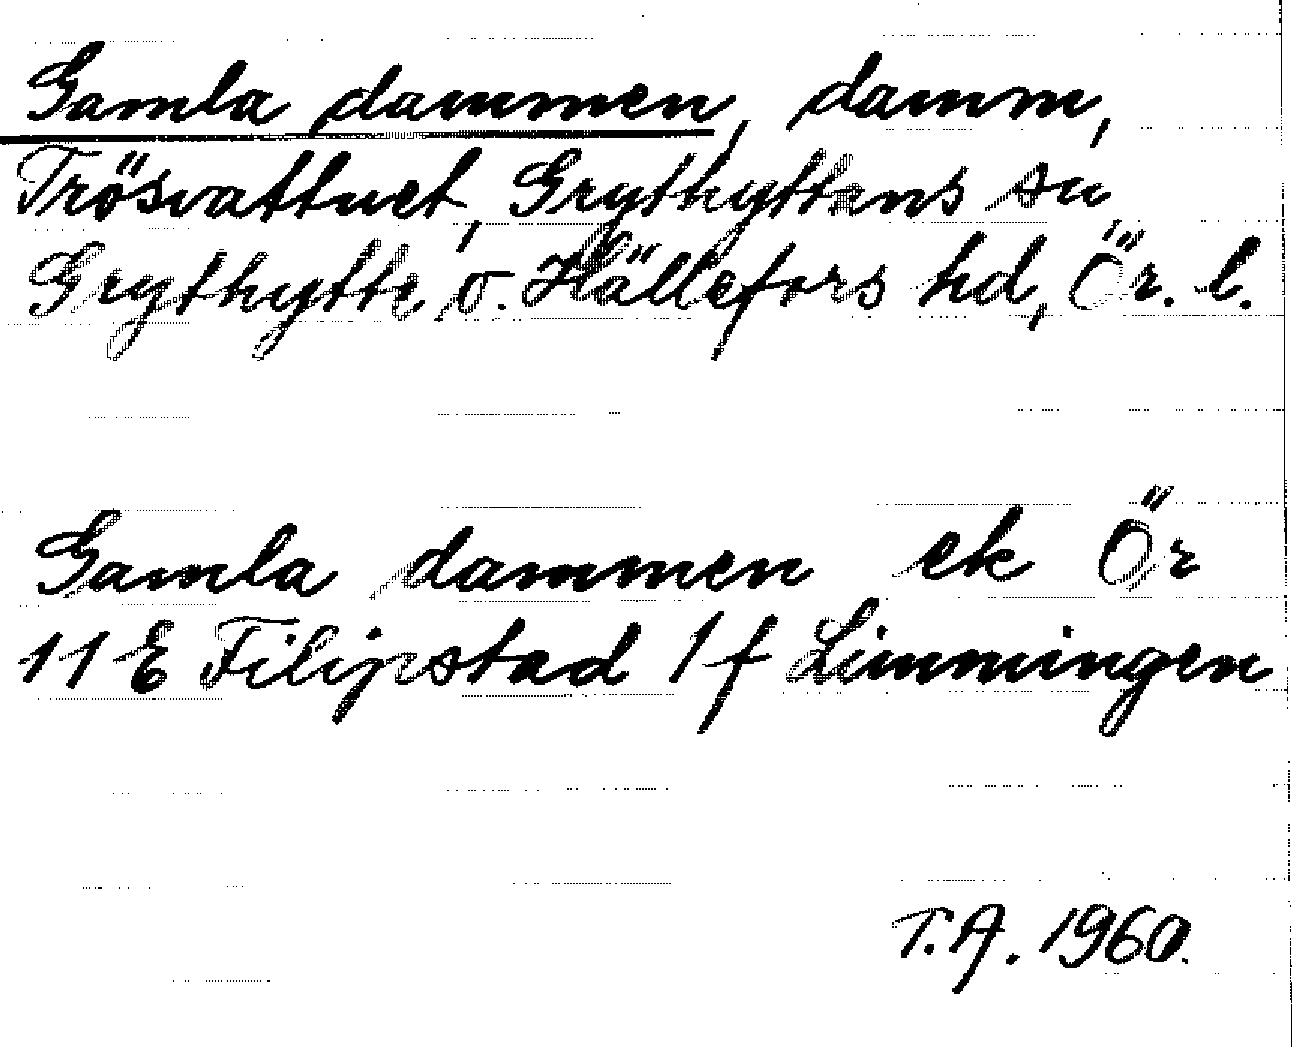 Gamla dammen, damm,
Trösvattnet, Grythyttans sn
Grythytte o. Hällefors hd, Ör. l.
Gamla dammen ek Ör
11 E Filipstad 1 f Limmingen
T.A. 1960.